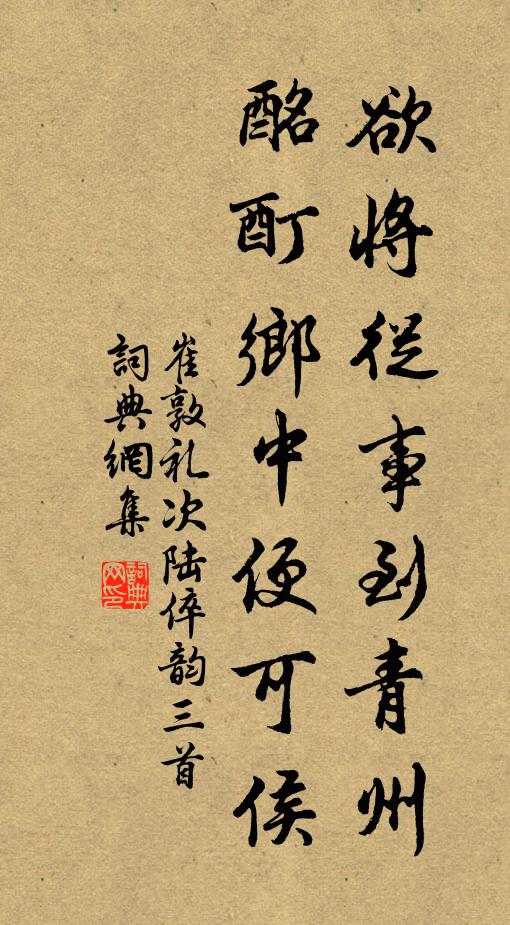 欲將從事到青州
酩酊鄉中便可侯
崔敦礼次陆倅韵三首
詞典網集
詞典网印